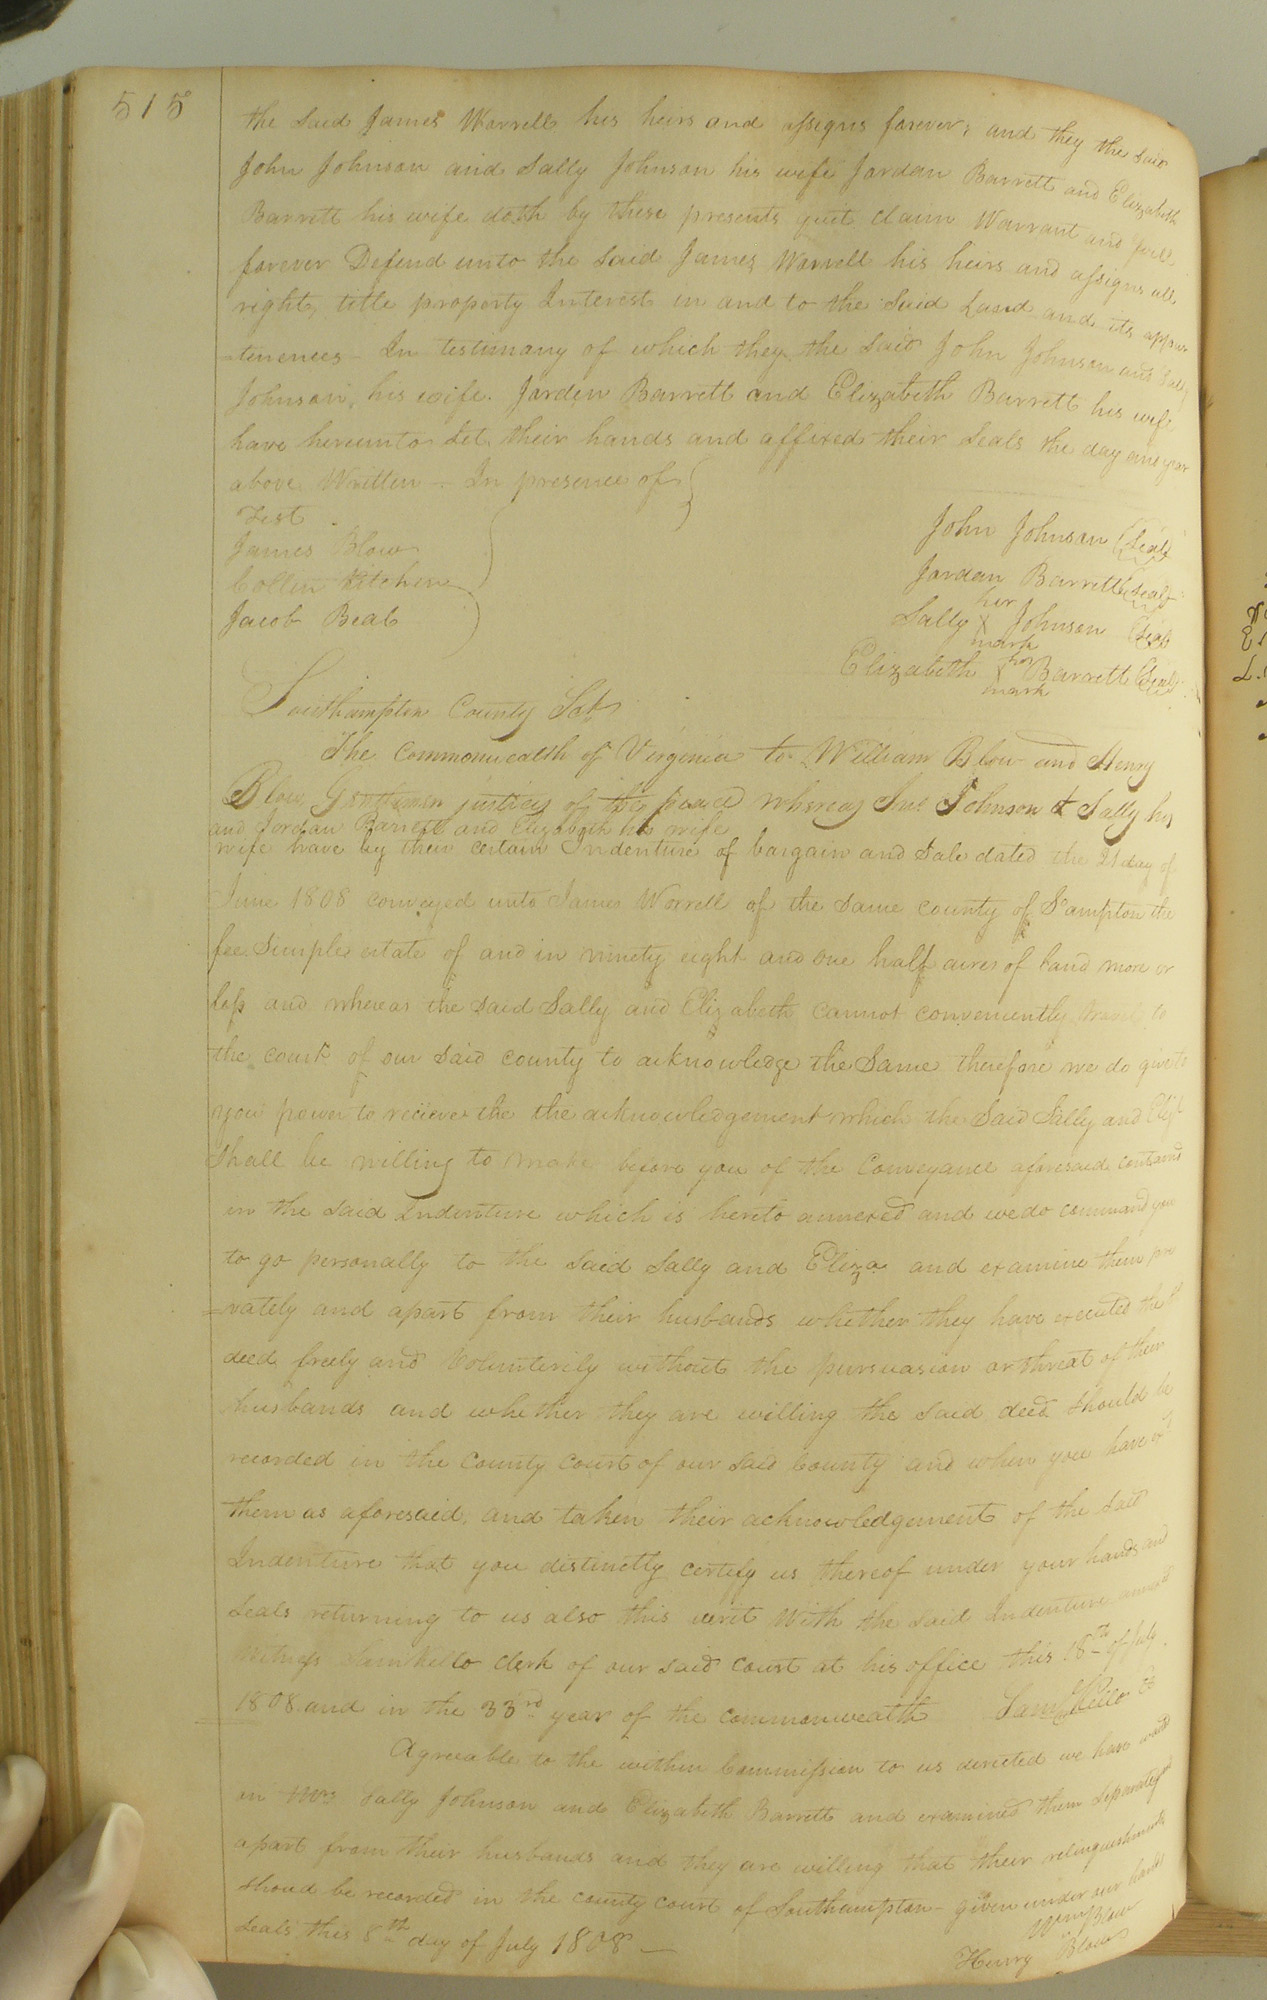 515
the said James Worrell his heirs and assigns forever; and they the said
John Johnson and Sally Johnson his wife Jordan Barrett and Elizabeth
Barrett his wife doth by these presents quit claim Warrant and will
forever Defend unto the said James Worrell his heirs and assigns all
right, title property Interest in and to the said Land and its appur
=tenences - In testimony of which they the said John Johnson and Sally
Johnson, his wife. Jordin Barrett and Elizabeth Barrett his wife
have hereunto Set their hands and affixed their Seals the day and year
above Written - In presence of
Test
James Blow
Collin Kitchen
Jacob Beal
John Johnson (Seal)
Jordan Barrett (Seal)
her
Sally X Johnson (Seal)
mark
her
Elizabeth X Barrett (Seal)
mark
Southampton County Sct
The Commonwealth of Virginia to William Blow and Henry
Blow, Gentlemen justices of the peace Whereas Jno. Johnson & Sally his
and Jordan Barrett and Elizabeth his wife
wife have by their certain Indenture of bargain and Sale dated the 21 day of
June 1808 conveyed unto James Worrell of the same county of S'ampton the
fee Simple estate of and in ninety eight and one half acres of land more or
less and whereas the said Sally and Elizabeth cannot conveniently travel to
the court of our said county to acknowledge the Same therefore we do give to
you power to recieve the the acknowledgement which the Said Sally and Eliz
Shall be willing to make before you of the Conveyance aforesaid contained
in the said Indenture which is hereto annexed and we do command you
to go personally to the said Sally and Eliza and examine them pri
=vately and apart from their husbands whether they have executed the
deed freely and Volunterily without the pursuasion or threat of their
husbands and whether they are willing the said deed should be
recorded in the County Court of our said County and when you have
them as aforesaid, and taken their acknowledgement of the said
Indenture that you distinctly certify us thereof under your hands and
Seals returning to us also this writ With the said Indenture annexed
Witness Sam Kello Clerk of our said Court at his office this 18th of July
1808. and in the 33rd year of the commonwealth Saml Kello
Agreeable to the within Commission to us directed we have waited
on Mrs Sally Johnson and Elizabeth Barrett and examined them Separately and
apart from their husbands and they are willing that their relinquishments
should be recorded in the county court of Southampton - given under our hands
Seals this 8th day of July 1808 -
Wm Blow
Henry Blow